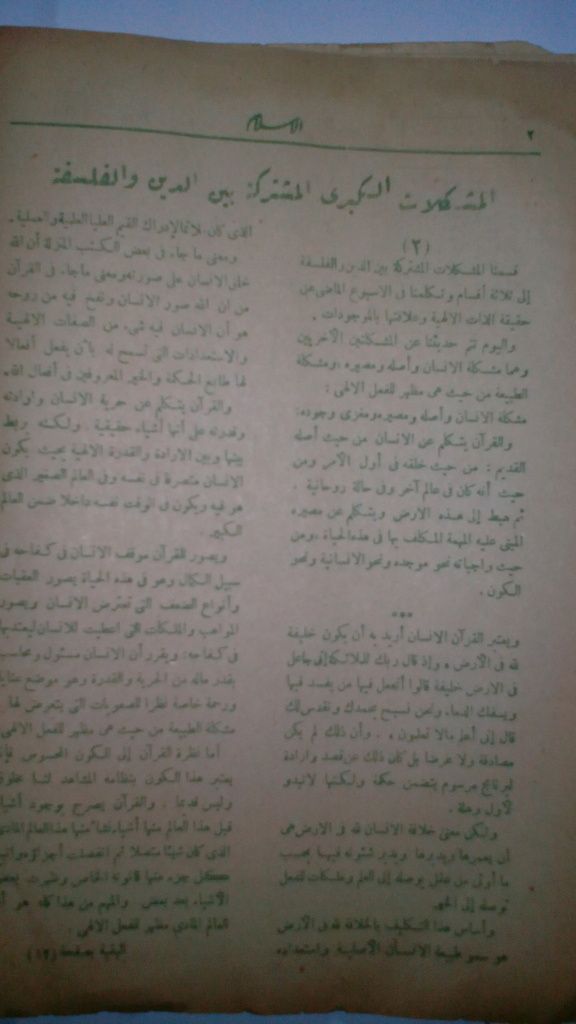 ٢
الإسلام
المشكلات الكبرى المشتركة بين الدين والفلسفة
(٢)
قسمنا المشكلات المشتركة بين الدين والفلسفة
إلى ثلاثة أقسام وتكلمنا فى الاسبوع الماضى عن
حقيقة الذات الالهية وعلاقتها بالموجودات .
واليوم نتم حديثنا عن المشكلتين الآخريين
وهما مشكلة الانسان وأصله ومصيره ، ومشكلة
الطبيعة من حيث هى مظهر للفعل الالهى :
مشكلة الانسان وأصله ومصيره ومغزى وجوده :
والقرآن يتكلم عن الانسان من حيث أصله
القديم : من حيث خلقه فى أول الأمر ومن
حيث أنه كان فى عالم آخر وفى حالة روحانية .
ثم هبط إلى هذه الارض ويتكلم عن مصيره
المبنى عليه المهمة المكلف بها فى هذه الحياة ، ومن
حيث واجباته نحو موجده ونحو الانسانية ونحو
الكون .
***
ويعتبر القرآن الانسان أريد به أن يكون خليفة
لله فى الأرض « وإذ قال ربك للملائكة إنى جاعل
فى الارض خليفة قالوا أتجعل فيها من يفسد فيها
ويسفك الدماء ونحن نسبح بحمدك ونقدس لك
قال إنى أعلم مالا تعلمون » . وأن ذلك لم يكن
مصادفة ولا عرضا بل كان ذلك عن قصد وارادة
لبرنامج مرسوم يتضمن حكمة ولكنها لاتبدو
لأول وهلة .
ولكن معنى خلافة الانسان لله فى الارض هى
أن يعمرها ويديرها ويدبر شئونه فيها بحسب
ما أوتى من عقل يوصله إلى العلم وملكات للفعل
توصله إلى الخير
وأساس هذا التكليف بالخلافة لله فى الأرض
هو سمو طبيعة الانسان الأصلية واستعداده
الذى كان ملائما لإدراك القيم العليا العلمية والعملية .
ومعنى ما جاء فى بعض الكتب المنزلة أن الله
خلق الانسان على صورته ومعنى ماجاء فى القرآن
من ان الله صور الانسان ونفخ فيه من روحه
هو أن الانسان فيه شىء من الصفات الالهية
والاستعدادات التى تسمح له بأن يفعل أفعالا
لها طابع الحكمة والخير المعروفين فى أفعال الله .
والقرآن يتكلم عن حرية الانسان وارادته
وقدرته على أنها أشياء حقيقية . ولكنه يربط
بينها وبين الارادة والقدرة الالهية بحيث يكون
الانسان متصرفا فى نفسه وفى العالم الصغير الذى
هو فيه ويكون فى الوقت نفسه داخلا ضمن العالم
الكبير .
ويصور القرآن موقف الانسان فى كفاحه فى
سبيل الكمال وهو فى هذه الحياة يصور العقبات
وأنواع الضعف التى تعترض الانسان ويصور
المواهب والملكات التى اعطيت للانسان ليعتد بها
فى كفاحه : ويقرر أن الانسان مسئول ومحاسب
بقدر ماله من الحرية والقدرة وهو موضع عناية
ورحمة خاصة نظرا للصعوبات التى يتعرض لها
مشكلة الطبيعة من حيث هى مظهر للفعل الالهى :
أما نظرة القرآن إلى الكون المحسوس فإنه
يعتبر هذا الكون بنظامه المشاهد لنا مخلوقا
وليس قديما . والقرآن يصرح بوجود أشياء
قبل هذا العالم منها أشياء نشأ منها هذا العالم المادى
الذى كان شيئا متصلا ثم انفصلت أجزاؤه
كل جزء منها قانونه الخاص وظهرت بعض
الأشياء بعد بعض والمهم من هذا كله هو أن
العالم المادى مظهر للفعل الالهى .
البقية بصفحة (١٢)